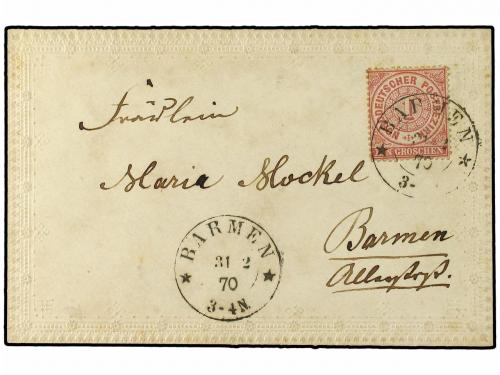 NORDDEUTSCHER POSTBEZIRK
GROSCHEN
BARMEN
70
3-
Fräulein
Maria Mockel
Barmen
BARMEN
31 2
70
3-4N.